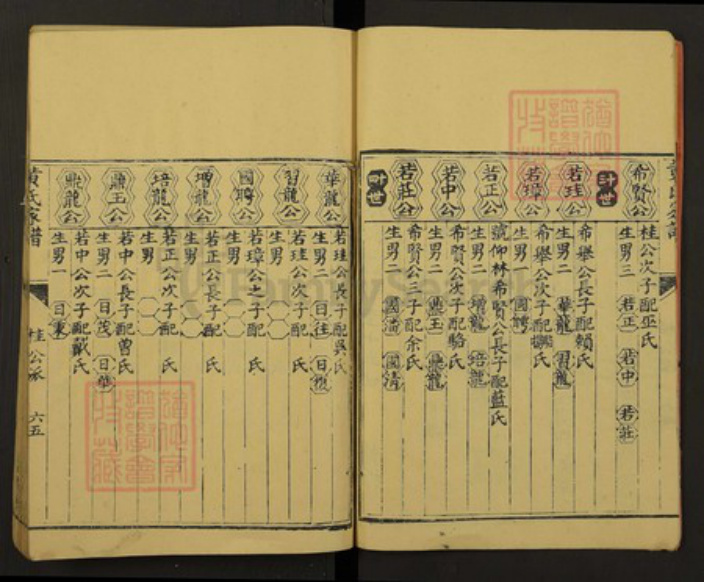 希賢公
桂公次子配巫氏
生男三 若正 若中 若莊
若珪公
希舉公長子配賴氏
生男二 華龍 習龍
若璋公
希舉公次子配 氏
生男一 國聘
若正公
號仰林希賢公長子配藍氏
生男二 增龍 培龍
若中公
希賢公次子配駱氏
生男二 鼎玉 鼎龍
若莊公
希賢公三子配余氏
生男二 國清
世
華龍公
若珪公長子配吳氏
生男二 日往 日復
習龍公
若珪公次子配 氏
生男
國聘公
若璋公之子配 氏
生男
增龍公
若正公長子配 氏
生男
培龍公
若正公次子配 氏
生男
鼎玉公
若中公長子配曾氏
生男二 日茂 日華
鼎龍公
若中公次子配戴氏
生男一
黃氏家譜
桂公派
六五
FamilySearch